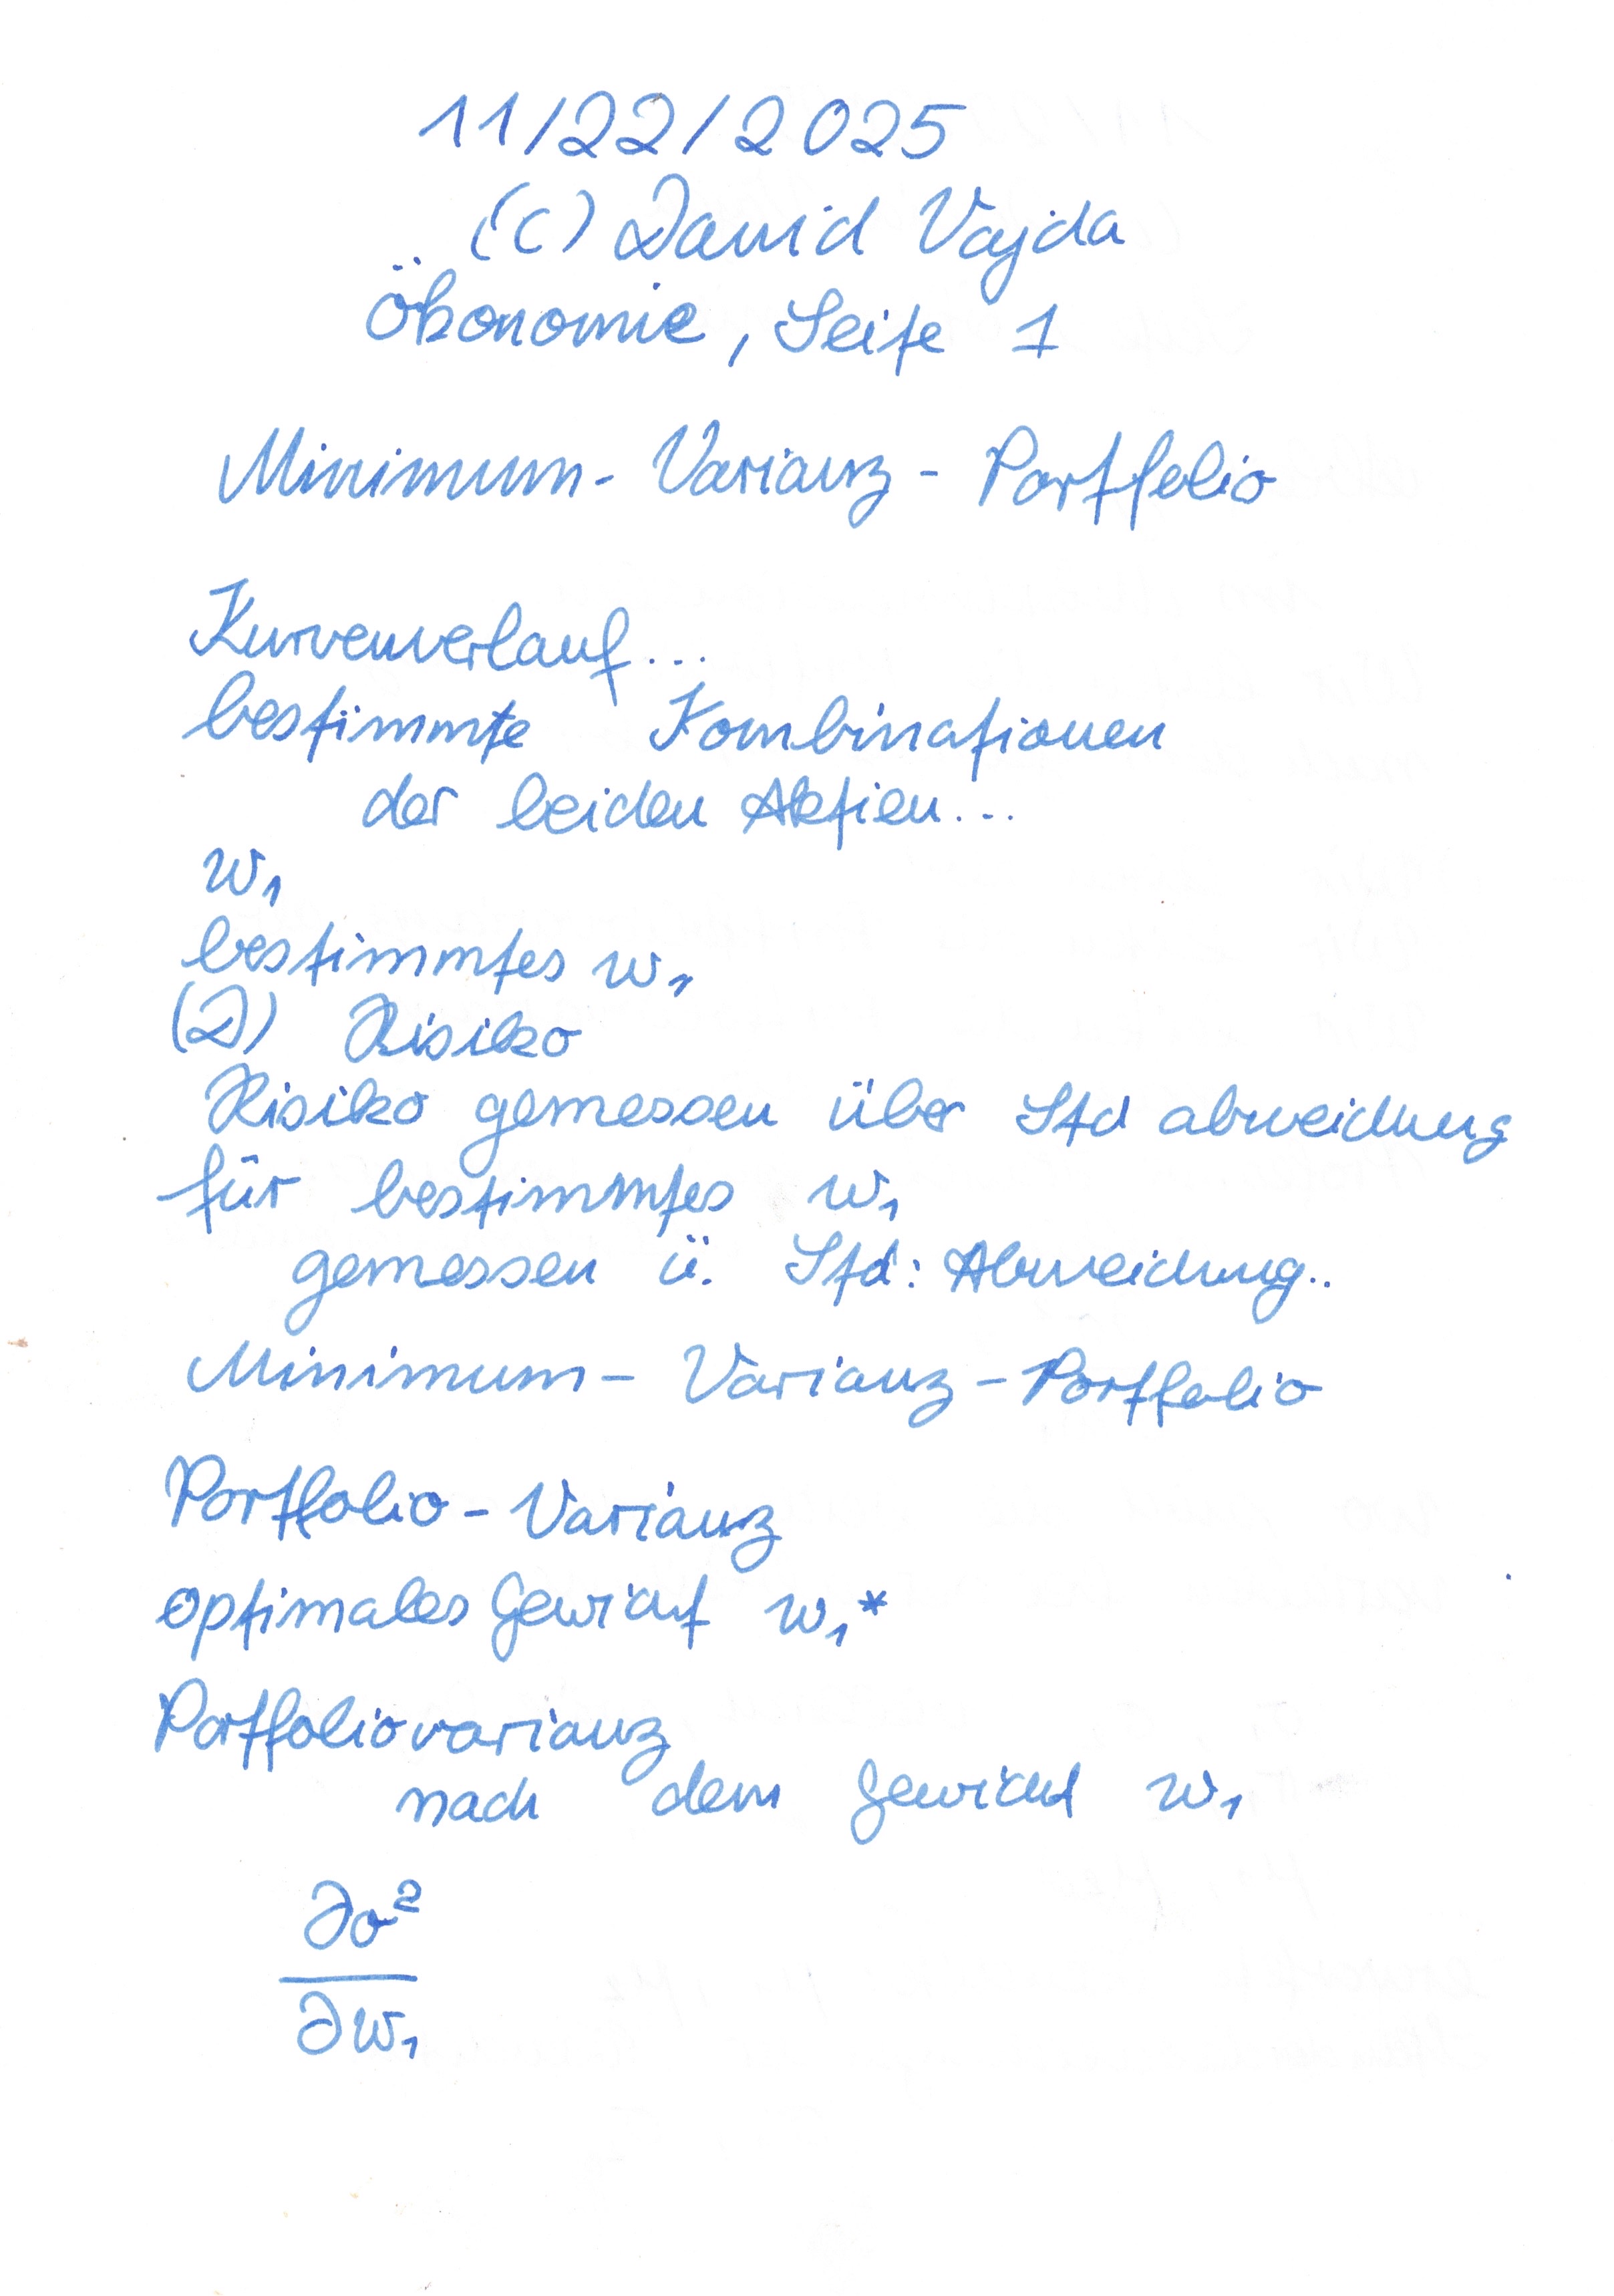 11/22/2025
(C) David Vajda
Ökonomie, Seite 1
Minimum-Varianz-Portfolio
Kurvenverlauf...
bestimmte Kombinationen
der beiden Aktien...
w₁
bestimmtes w₁
(2) Risiko
Risiko gemessen über Std abweichung
für bestimmtes w₁
gemessen ü. Std: Abweichung..
Minimum-Varianz-Portfolio
Portfolio-Varianz
optimales Gewicht w₁*
Portfoliovarianz
nach dem Gewicht w₁
∂σ²
∂w₁